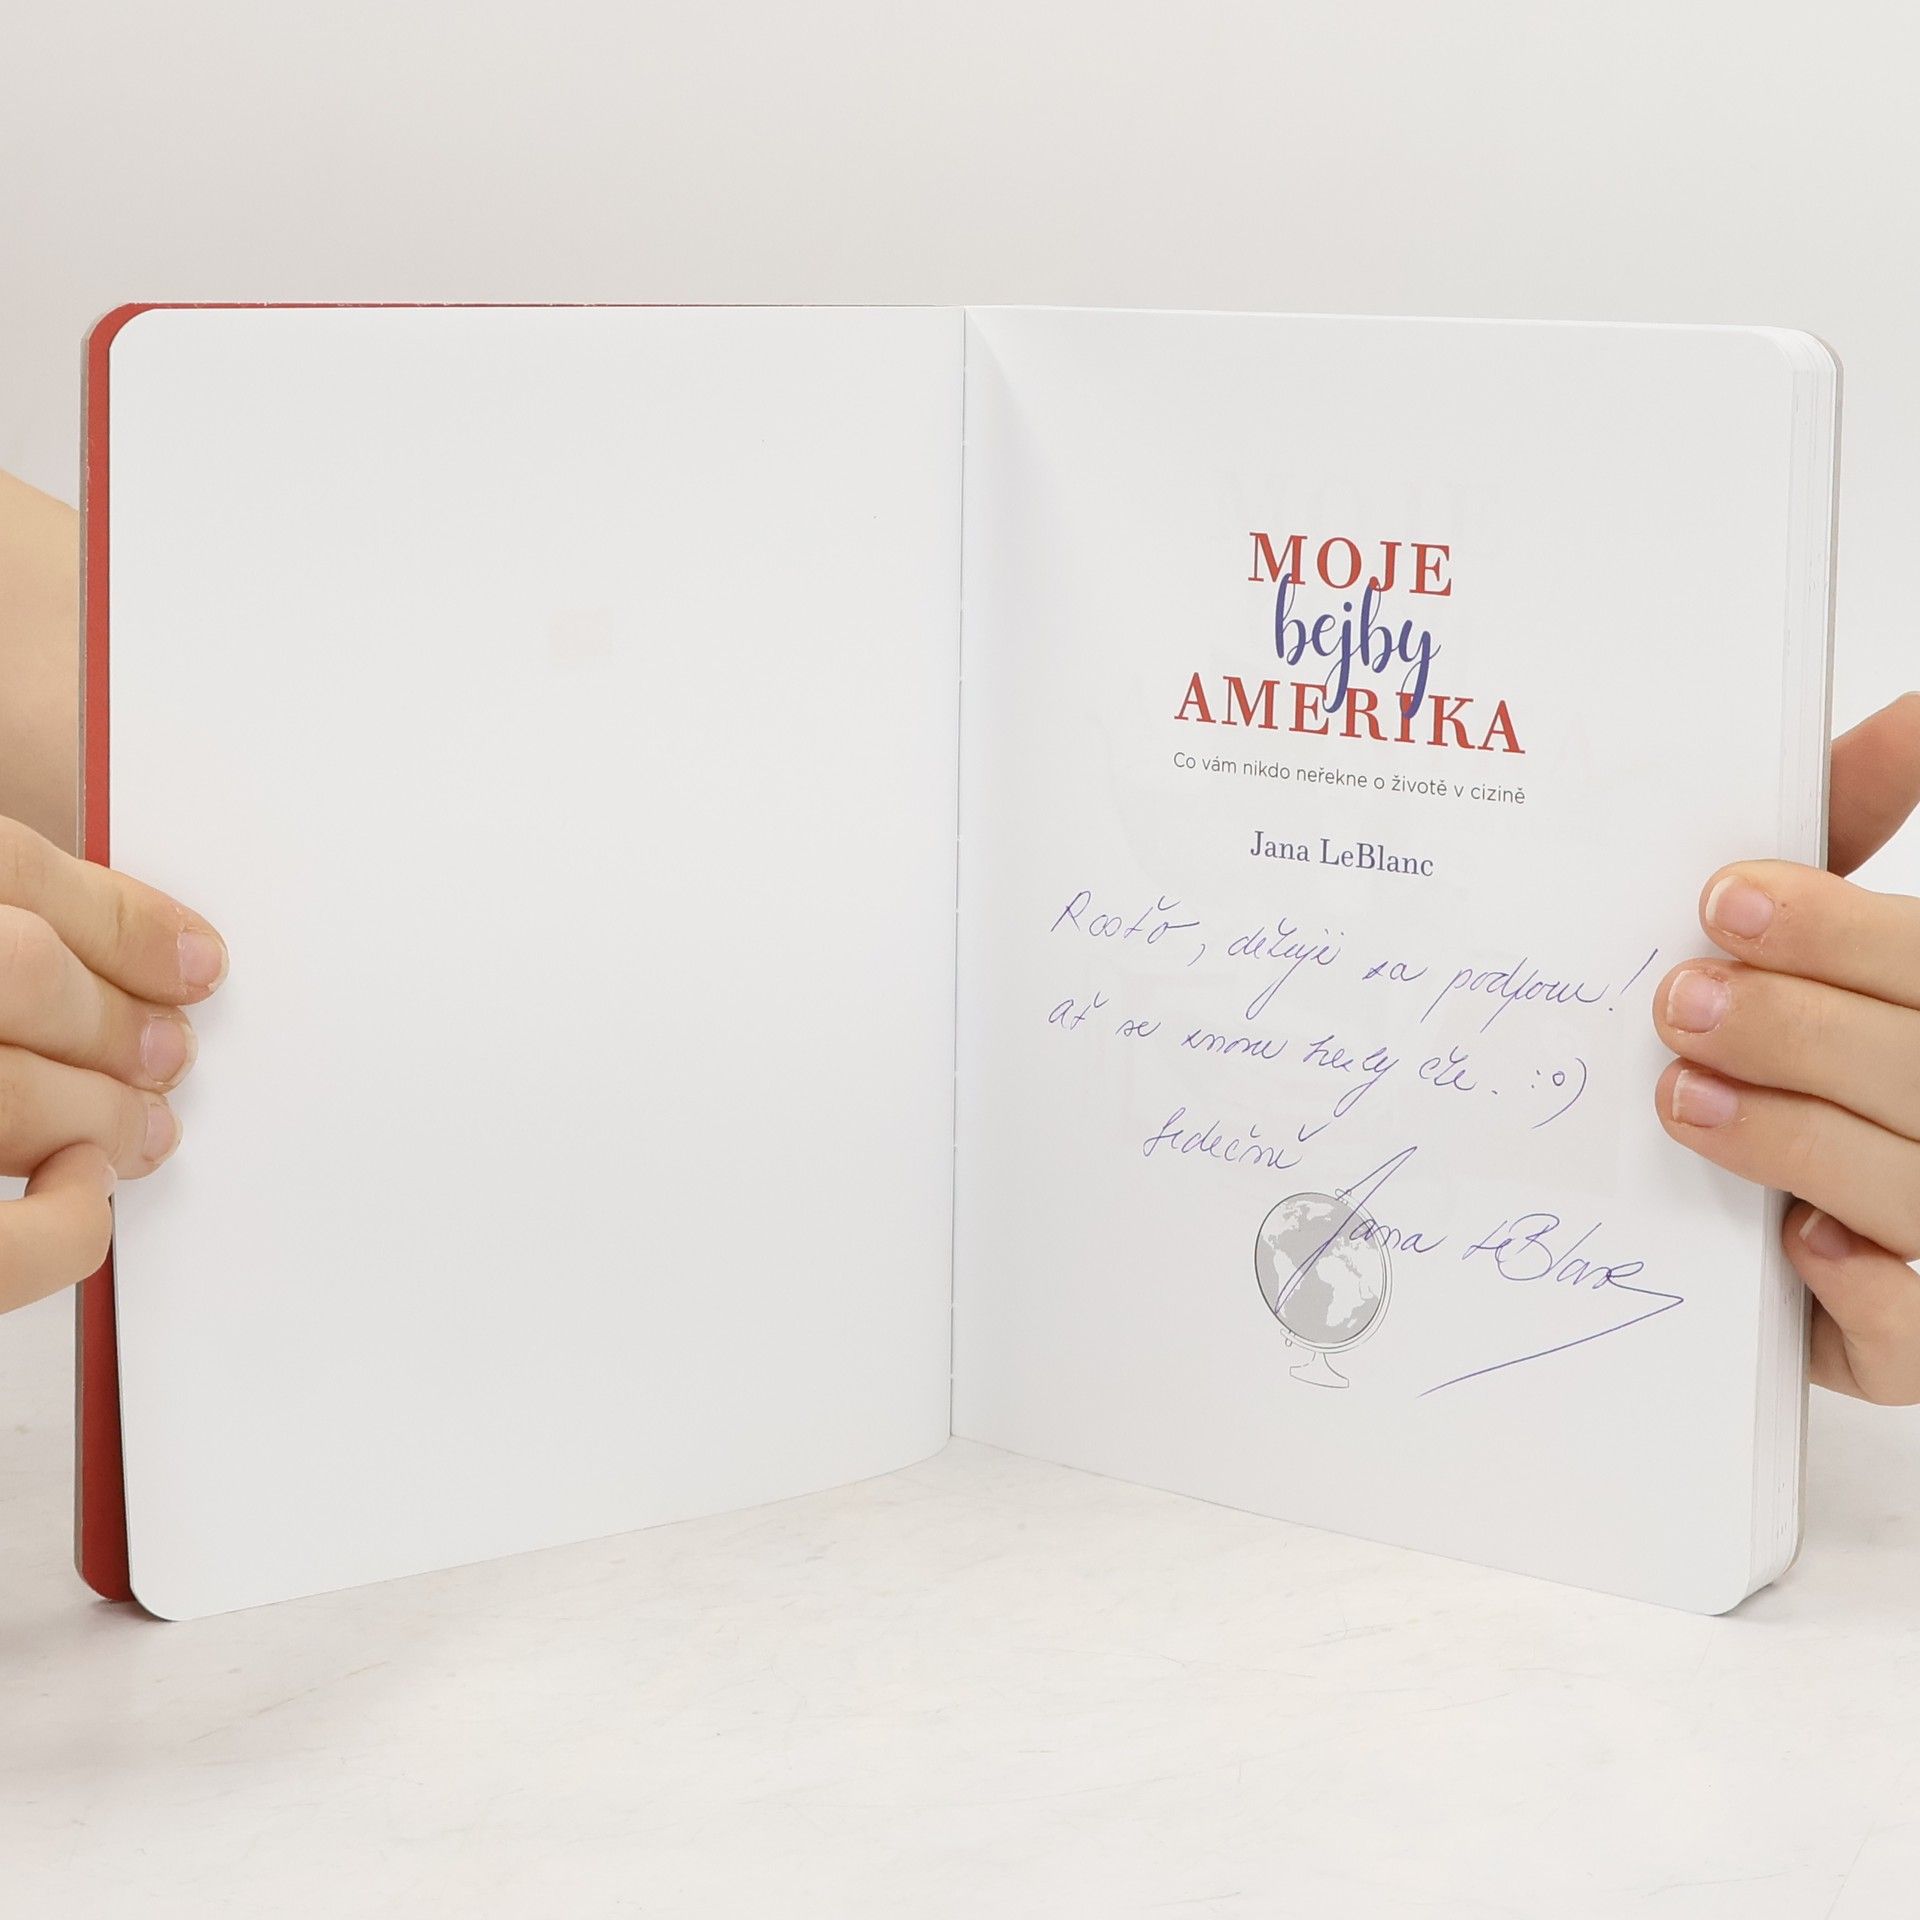 MOJE
bejby
AMERIKA
Co vám nikdo neřekne o životě v cizině
Jana LeBlanc
Rosťo, děkuji za podporu!
Ať se mnou hezky čte. :o)
Srdečně
Jana LeBlanc